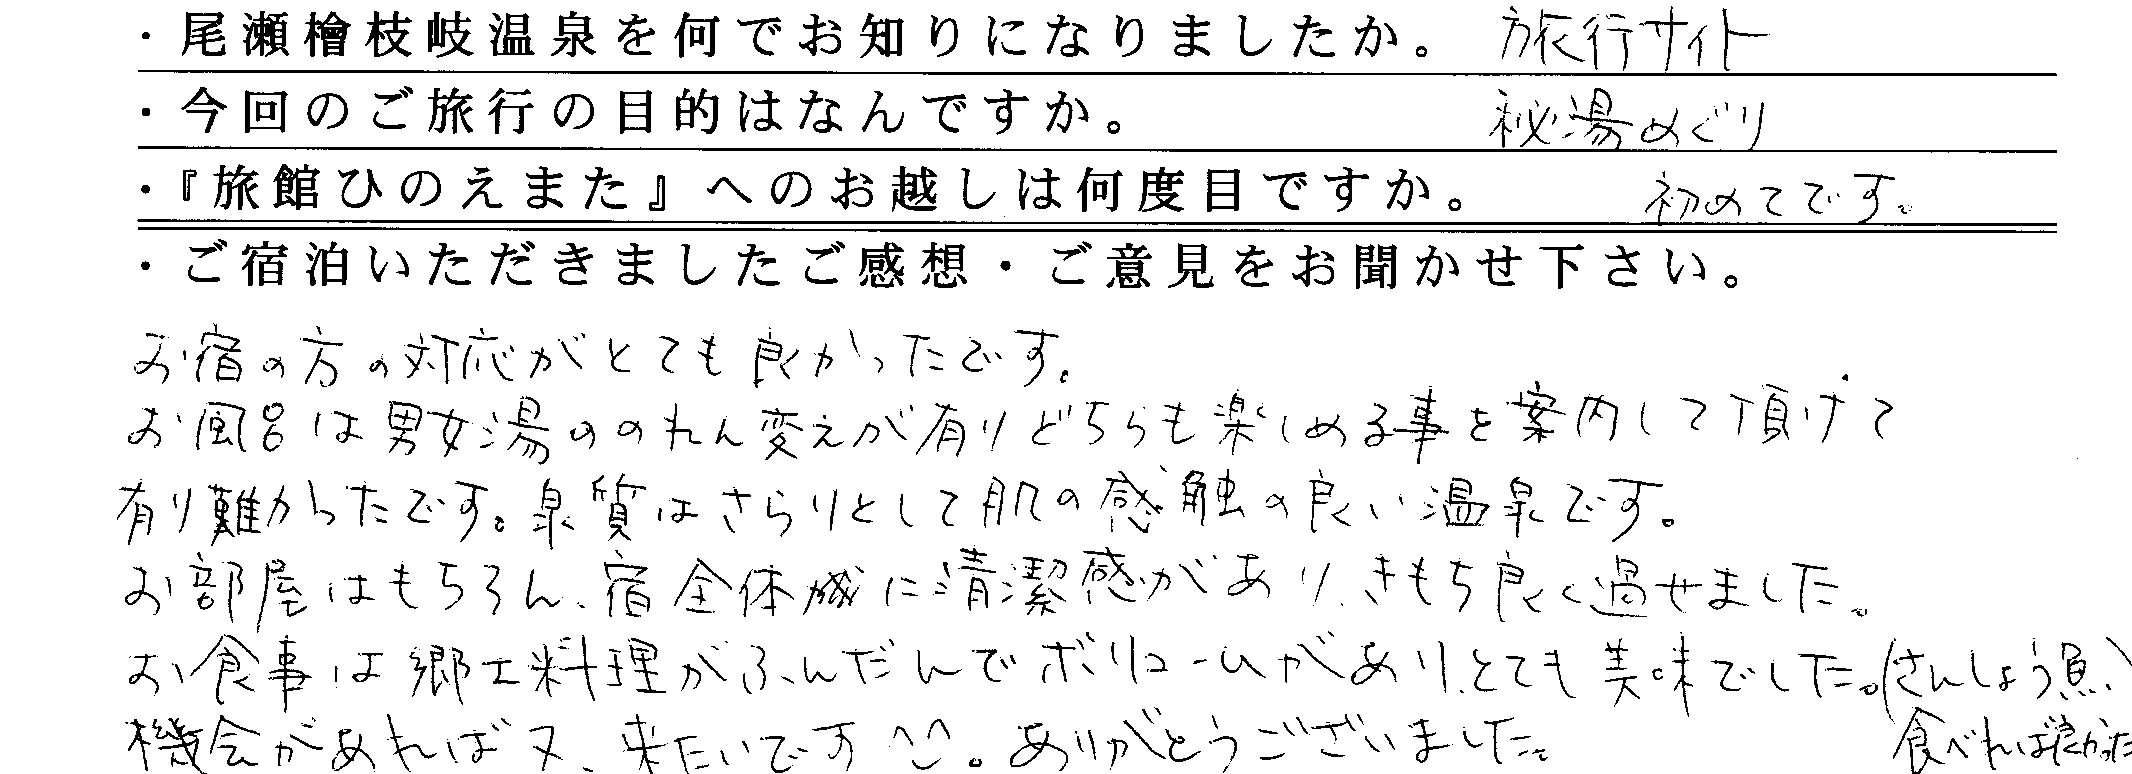 ・尾瀬檜枝岐温泉を何でお知りになりましたか。 旅行サイト
・今回のご旅行の目的はなんですか。 秘湯めぐり
・『旅館ひのえまた』へのお越しは何度目ですか。 初めてです。
・ご宿泊いただきましたご感想・ご意見をお聞かせ下さい。
お宿の方の対応がとても良かったです。
お風呂は男女湯ののれん変えが有りどちらも楽しめる事を案内して頂けて
有り難かったです。泉質はさらりとして肌の感触の良い温泉です。
お部屋はもちろん、宿全体に清潔感があり、きもち良く過せました。
お食事は郷土料理がふんだんでボリュームがあり、とても美味でした。(さんしょう魚、
食べれば良かった
機会があれば又、来たいです^^。ありがとうございました。